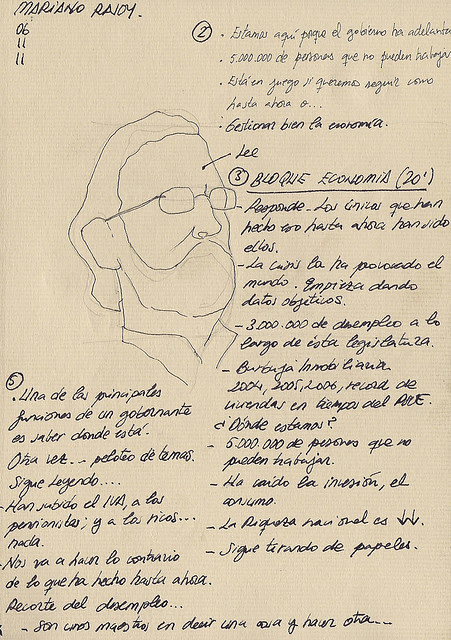 MARIANO RAJOY.
06
11
11
② . Estamos aquí porque el gobierno ha adelanta
. 5.000.000 de personas que no pueden trabajar
. Está en juego si queremos seguir como
hasta ahora o...
. Gestionar bien la economía.
Lee
③ BLOQUE ECONOMIA (20')
- Responde - Los únicos que han
hecho eso hasta ahora han sido
ellos.
- La crisis la ha provocado el
mundo. Empieza dando
datos objetivos.
- 3.000.000 de desempleo a lo
largo de esta legislatura.
- Burbuja Inmobiliaria
2004, 2005, 2006, record de
viviendas en tiempos del PSOE.
¿Dónde estamos?
- 5.000.000 de personas que no
pueden trabajar.
- Ha caído la inversión, el
consumo.
- La Riqueza nacional es ↓↓.
- Sigue tirando de papeles.
⑤
. Una de las principales
funciones de un gobernante
es saber donde está.
Otra vez... peloteo de temas.
Sigue leyendo....
- Han subido el IVA, a los
pensionistas; y a los ricos...
nada.
- Nos va a hacer lo contrario
de lo que ha hecho hasta ahora.
Recorte del desempleo...
- Son unos maestros en decir una cosa y hacer otra...